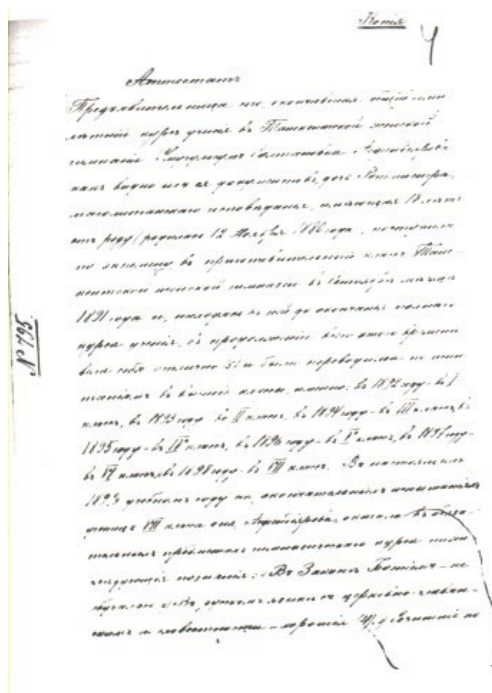 Копія
4
Аттестатъ
Предъявительница сего, окончившая общій семи
лѣтній курсъ ученія въ Ташкентской женской
гимназіи Асфендіярова
какъ видно изъ ея документовъ, дочь Ротмистра,
магометанскаго исповѣданія, имѣющая 18 лѣтъ
отъ роду (родилась 12 Ноября 1880 года, поступила
по экзамену въ приготовительный классъ Таш
кентской женской гимназіи въ Сентябрѣ мѣсяцѣ
1891 года и, находясь въ ней до окончанія полнаго
курса ученія, въ продолженіи всего этого времени
вела себя отлично (5) и была переводима по испы
таніямъ въ высшіе классы, именно: въ 1892 году въ I
классъ, въ 1893 году во II классъ, въ 1894 году въ III классъ, въ
1895 году въ IV классъ, въ 1896 году въ V классъ, въ 1897 году
въ VI классъ, въ 1898 году въ VII классъ. Въ настоящемъ
189 учебномъ году на окончательномъ испытаніи
ученица VII класса она, Асфендіярова, оказала въ обяза
тельныхъ предметахъ гимназическаго курса ниже
слѣдующія познанія: Въ Законѣ Божіемъ - не
обучалась въ русскомъ языкѣ съ церковно-славян
скимъ и словесностью - хорошія (4),
№ 795